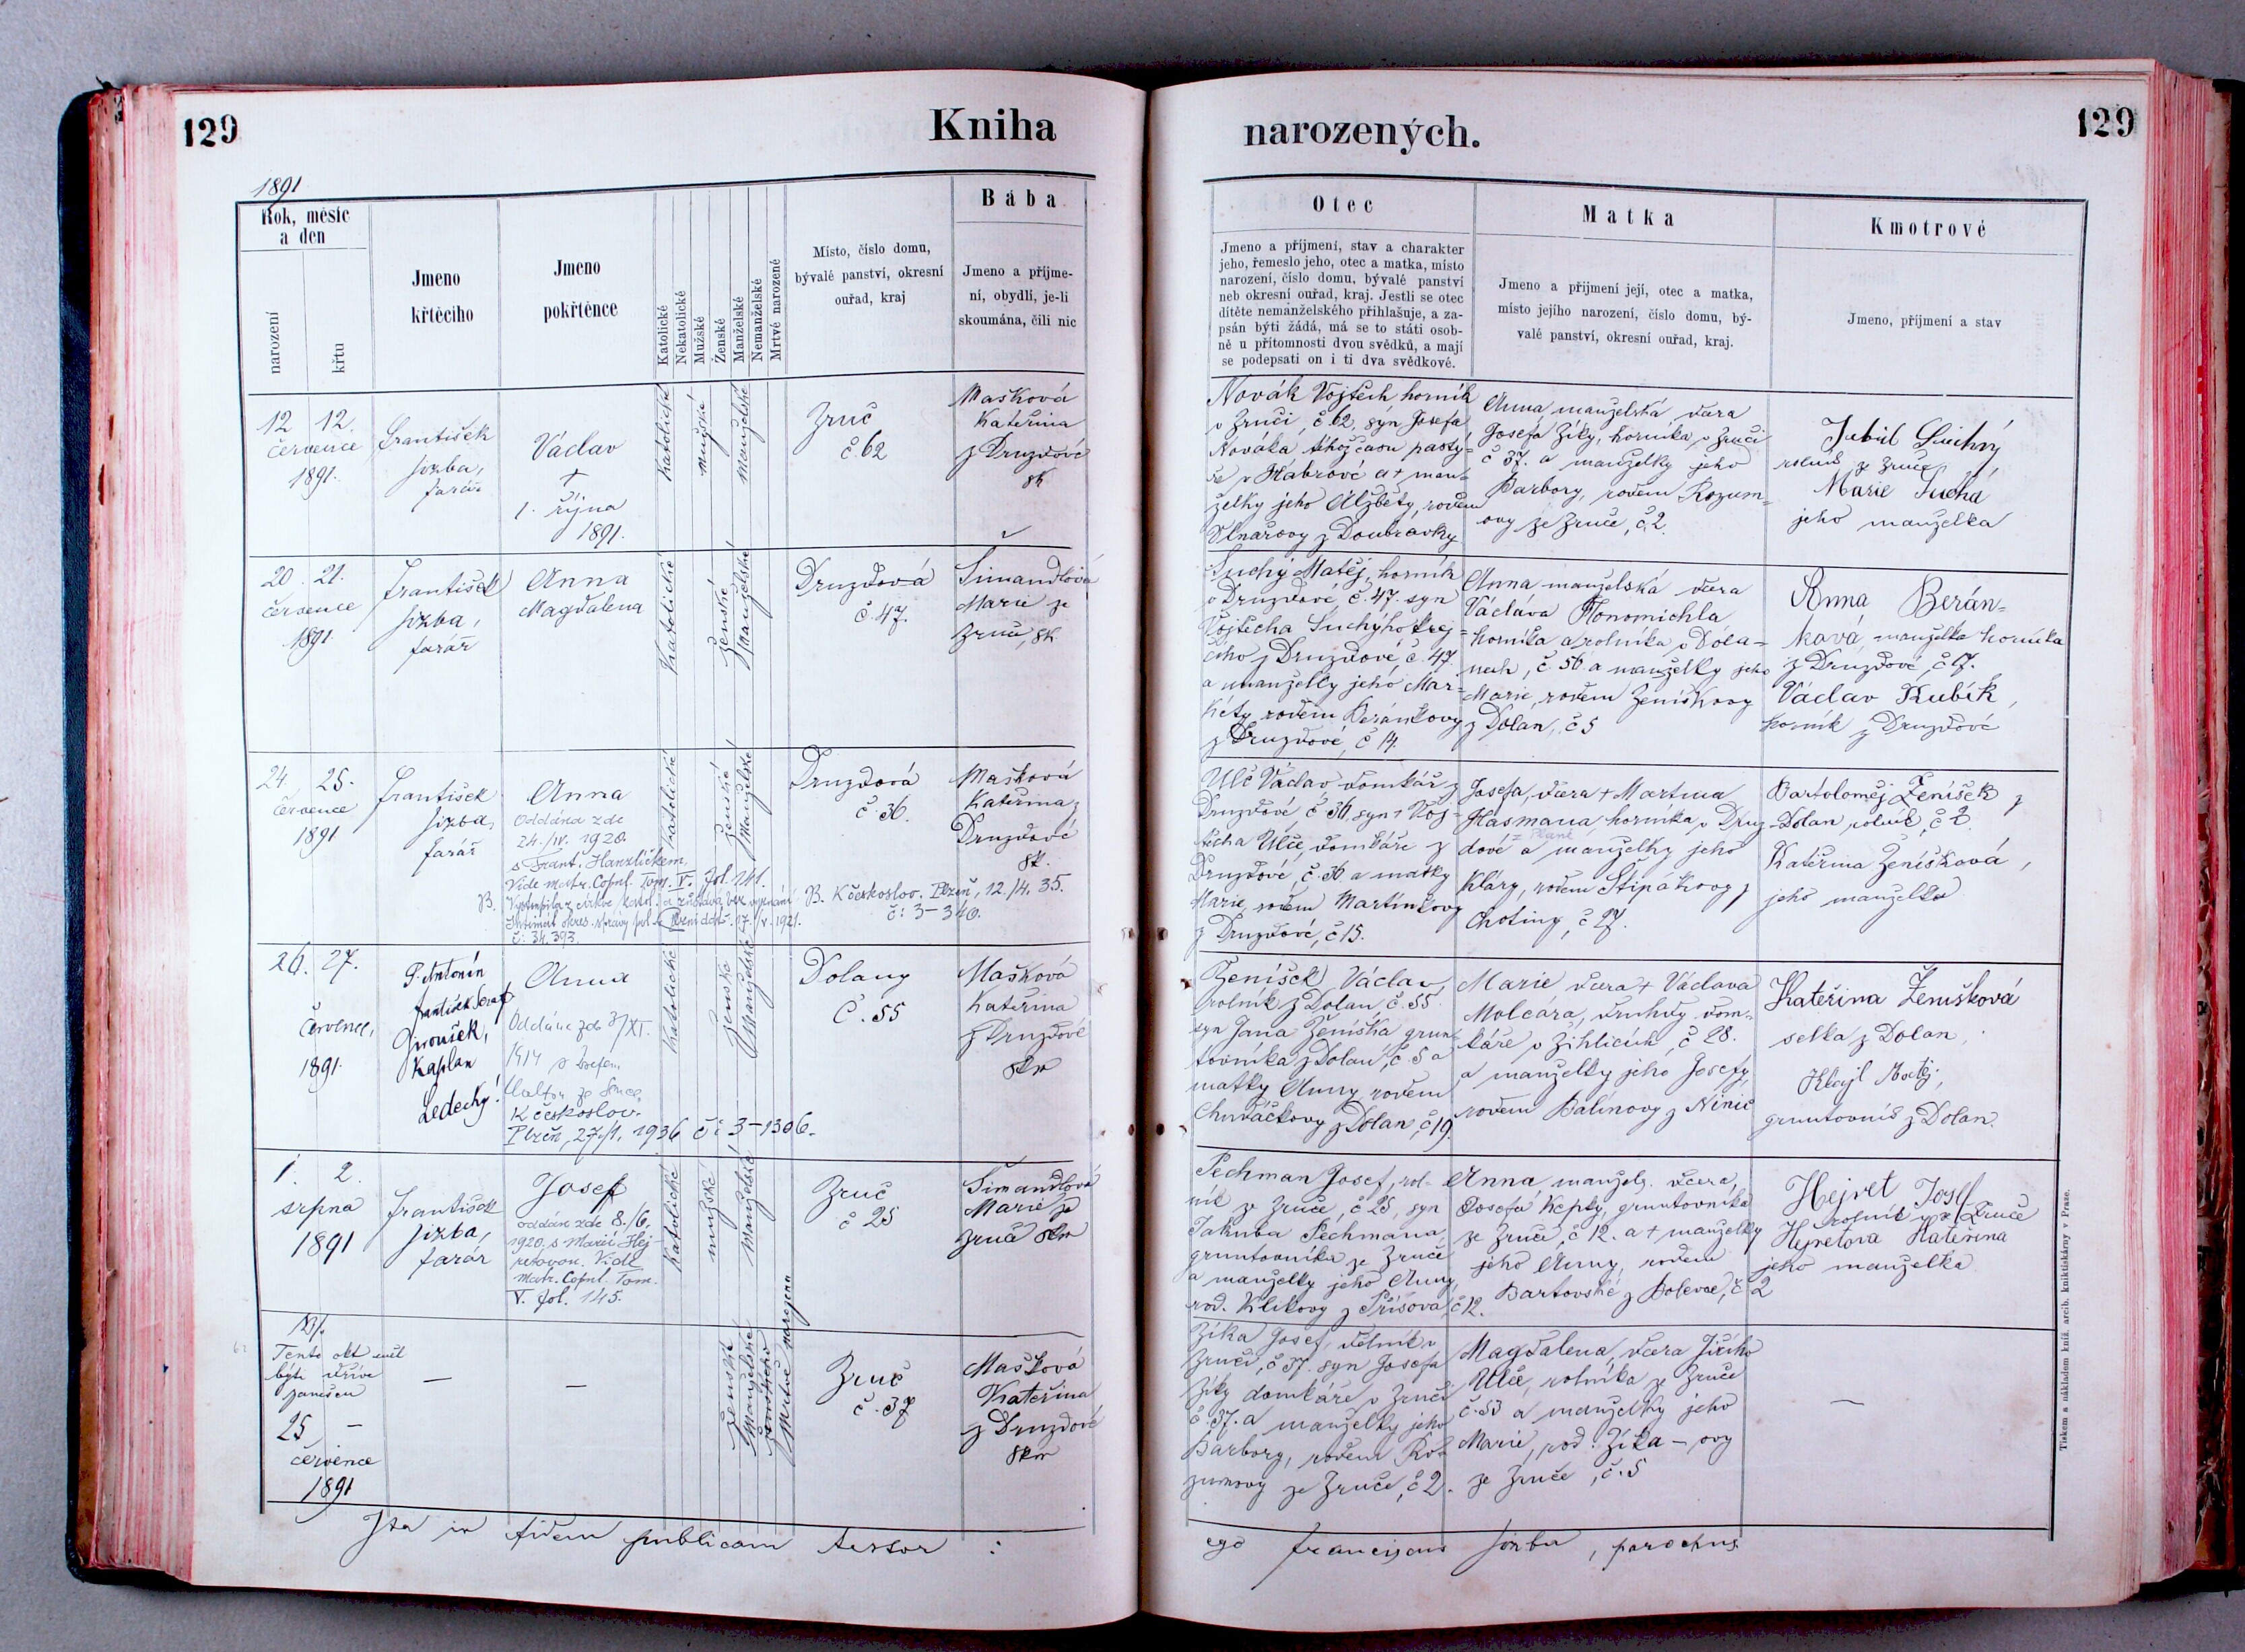 129
Kniha
1891
Rok, měsíc
a den
narození
křtu
Jmeno
křtěcího
Jmeno
pokřtěnce
Katolické
Nekatolické
Mužské
Ženské
Manželské
Nemanželské
Mrtvé narozené
Místo, číslo domu,
bývalé panství, okresní
ouřad, kraj
Bába
Jmeno a příjme-
ní, obydlí, je-li
skoumána, čili nic
12 12.
července
1891.
František
Jizba,
farář
Václav
+
1. října
1891.
Katolické
mužské
manželské
Zruč
č. 62
Mašková
Kateřina
z Druzdové
sk
20. 21.
července
1891.
František
Jizba,
farář
Anna
Magdalena
Katolické
ženské
Manželské
Druzdová
č. 47.
Šimandlová
Marie ze
Zruče, sk
24. 25.
července
1891
František
Jizba,
farář
Anna
Oddána zde
24./IV. 1920.
s Frant. Hanzlíčkem,
Vide matr. Copul. Tom. V. fol. 141.
B. Vystoupila z církve katol. a zůstává bez vyznání
okres. správy pol. 1921.
č: 34.393.
Katolické
ženské
Manželské
Druzdová
č. 36.
B. K českoslov. Plzeň, 12./4. 35.
č: 3-340.
Mašková
Kateřina z
Druzdové
sk.
26. 27.
července,
1891.
P. Antonín
František Seraf.
Jiroušek,
Kaplan
Ledecký!
Anna
Oddána zde 3/XI.
1914 s Josefem
K českoslov.
Plzeň, 27./1. 1936 č: 3-1306.
Katolické
ženské
Manželské
Dolany
Č. 55
Mašková
Kateřina
z Druzdové
skm
1. 2.
srpna
1891
František
Jizba,
farár
Josef
oddán zde 8./6.
1920. s Marií Hej-
retovou. Vide
Matr. Copul. Tom.
V. fol. 145.
Katolické
mužské
manželské
Zruč
č 25
Šimandlová
Marie ze
Zruče skm
Tento akt měl
býti dříve
zanešen
25 —
července
1891
—
—
ženské
Manželské
Mrtvě narozena
Zruč
č. 37
Mašková
Kateřina
z Druzdové
skm
Ita in fidem publicam testor :
129
narozených.
Otec
Jmeno a příjmení, stav a charakter
jeho, řemeslo jeho, otec a matka, místo
narození, číslo domu, bývalé panství
neb okresní ouřad, kraj. Jestli se otec
dítěte nemanželského přihlašuje, a za-
psán býti žádá, má se to státi osob-
ně u přítomnosti dvou svědků, a mají
se podepsati on i ti dva svědkové.
Matka
Jmeno a příjmení její, otec a matka,
místo jejího narození, číslo domu, bý-
valé panství, okresní ouřad, kraj.
Kmotrové
Jmeno, příjmení a stav
Novák Vojtěch horník
v Zruči, č. 62, syn Josefa
Nováka téhož času pastý-
ře v Habrové a + man-
želky jeho Alžběty, rodem
z Doubravky
Anna manželská dcera
Josefa Zíky, horníka v Zruči
č 37. a manželky jeho
Barbory, rodem Rozum-
ovy ze Zruče, č. 2.
Suchý,
rolník ze Zruče,
Marie Suchá
jeho manželka
Suchý Matěj, horník
v Druzdové č. 47. syn
Vojtěcha Suchýho krej-
čího z Druzdové, č. 47.
a manželky jeho Mar-
kéty, rodem Beránkovy
z Druzdové, č 14.
Anna manželská dcera
Václava Honomichla
horníka a rolníka v Dola-
nech, č. 56. a manželky jeho
Marie, rodem Ženíškovy
z Dolan, č 5
Anna Berán-
ková, manželka horníka
z Druzdové, č 17.
Václav Kubík,
horník z Druzdové
Ulč Václav domkář z
Druzdové, č 36, syn + Voj-
těcha Ulče, domkáře z
Druzdové, č. 36 a matky
Marie, rodem Martínkovy
z Druzdové, č 15.
Josefa, dcera + Martina
Hásmana, horníka v Druz-
dové a manželky jeho
Kláry, rodem Štipákovy z
Chotiny, č 27.
Bartoloměj Ženíšek z
Dolan, rolník, č 2.
Kateřina Ženíšková,
jeho manželka
Ženíšek Václav,
rolník z Dolan č. 55.
syn Jana Ženíška grun-
tovníka z Dolan, č. 5 a
matky Anny, rodem
Chudáčkovy z Dolan, č 19.
Marie dcera + Václava
Molcára, druhdy dom-
káře v Žihlicích, č 28.
a manželky jeho Josefy,
rodem Balínovy z Ninic
Kateřina Ženíšková
selka z Dolan,
Matěj,
gruntovník z Dolan.
Pechman Josef, rol-
ník ze Zruče, č 25, syn
Jakuba Pechmana,
gruntovníka ze Zruče
a manželky jeho Anny,
rod. Klikovy z Příšova, č 12.
Anna manžels. dcera,
Josefa Kepky, gruntovníka
ze Zruče, č 12. a + manželky
jeho Anny, rodem
Bartovské z Bolevce, č 2
Hejret Josef
rolník ze Zruče
Hejretova Kateřina
jeho manželka
Zíka Josef, dělník v
Zruči, č 37. syn Josefa
Zíky domkáře v Zruči
č. 37. a manželky jeho
Barbory, rodem Ro-
zumovy ze Zruče, č 2.
Magdalena, dcera Jiřího
Ulče, rolníka ze Zruče
č. 53 a manželky jeho
Marie, rod. Zíka-ovy
ze Zruče, č. 5
—
ego Franciscus Jizba, parochus
Tiskem a nákladem kníž. arcib. knihtiskárny v Praze.